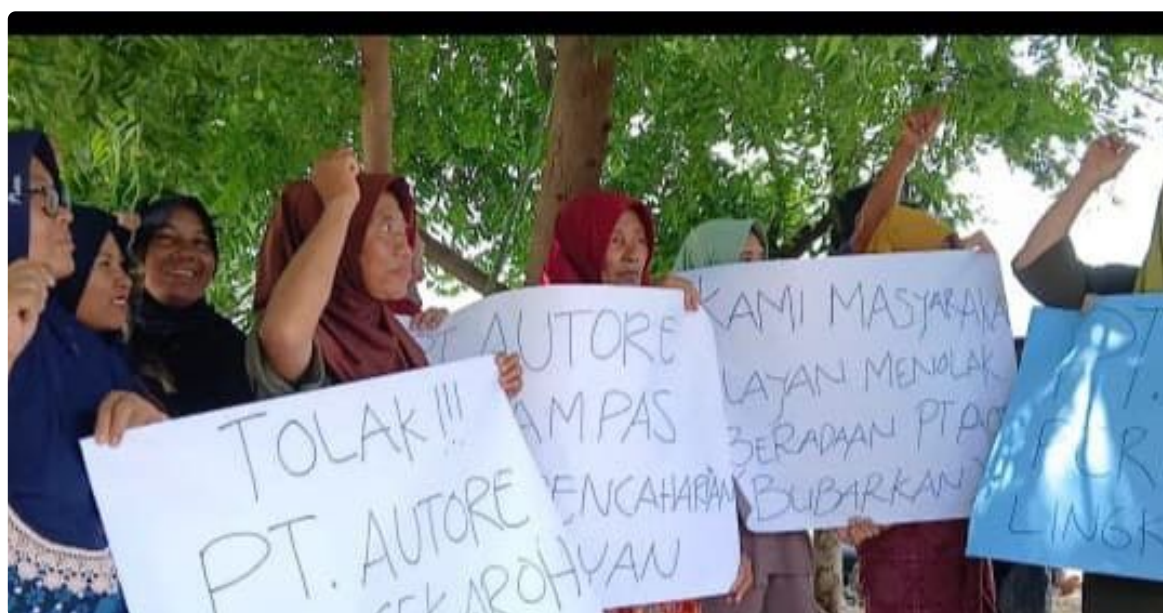 TOLAK!!!
PT. AUTORE
SEKAROHYAN
AUTORE
AMPAS
ENCAHARIAN
KAMI MASYARAKA
LAYAN MENOLAK
BERADAAN PT
BUBARKAN
PT.
LINGK